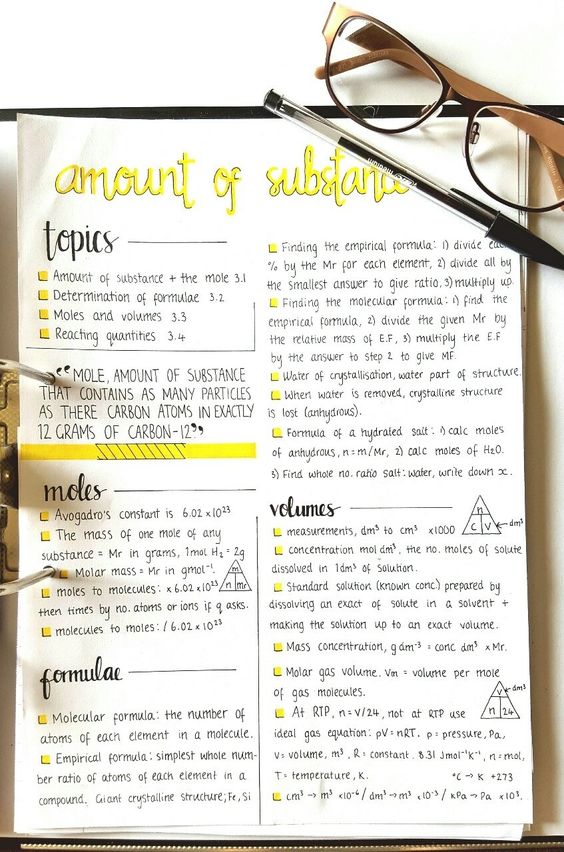 amount of substance
topics
Amount of substance + the mole 3.1
Determination of formulae 3.2
Moles and volumes 3.3
Reacting quantities 3.4
"MOLE, AMOUNT OF SUBSTANCE
THAT CONTAINS AS MANY PARTICLES
AS THERE CARBON ATOMS IN EXACTLY
12 GRAMS OF CARBON-12"
moles
Avogadro's constant is 6.02 x 10²³
The mass of one mole of any
substance = Mr in grams, 1mol H₂ = 2g
Molar mass = Mr in gmol⁻¹.
moles to molecules: x 6.02 x 10²³
m
n mr
then times by no. atoms or ions if q asks.
molecules to moles: / 6.02 x 10²³
formulae
Molecular formula: the number of
atoms of each element in a molecule.
Empirical formula: simplest whole num-
ber ratio of atoms of each element in a
compound. Giant crystalline structure; Fe, Si
Finding the empirical formula: 1) divide each
% by the Mr for each element, 2) divide all by
the smallest answer to give ratio, 3) multiply up.
Finding the molecular formula: 1) find the
empirical formula, 2) divide the given Mr by
the relative mass of E.F, 3) multiply the E.F
by the answer to step 2 to give MF.
Water of crystallisation, water part of structure.
When water is removed, crystalline structure
is lost (anhydrous).
Formula of a hydrated salt: 1) calc moles
of anhydrous, n = m/Mr, 2) calc moles of H₂O.
3) Find whole no. ratio salt: water, write down x.
volumes
n
c V
dm³
measurements, dm³ to cm³ x1000
concentration mol dm³, the no. moles of solute
dissolved in 1dm³ of solution.
Standard solution (known conc) prepared by
dissolving an exact of solute in a solvent +
making the solution up to an exact volume.
Mass concentration, g dm⁻³ = conc dm³ x Mr.
Molar gas volume. Vm = volume per mole
of gas molecules.
V
n 24
dm³
At RTP, n = V/24, not at RTP use
ideal gas equation: pV = nRT. p = pressure, Pa,
V = volume, m³, R = constant. 8.31 Jmol⁻¹K⁻¹, n = mol,
T = temperature, K. °C → K +273
cm³ → m³ x10⁻⁶ / dm³ → m³ x10⁻³ / kPa → Pa x 10³.